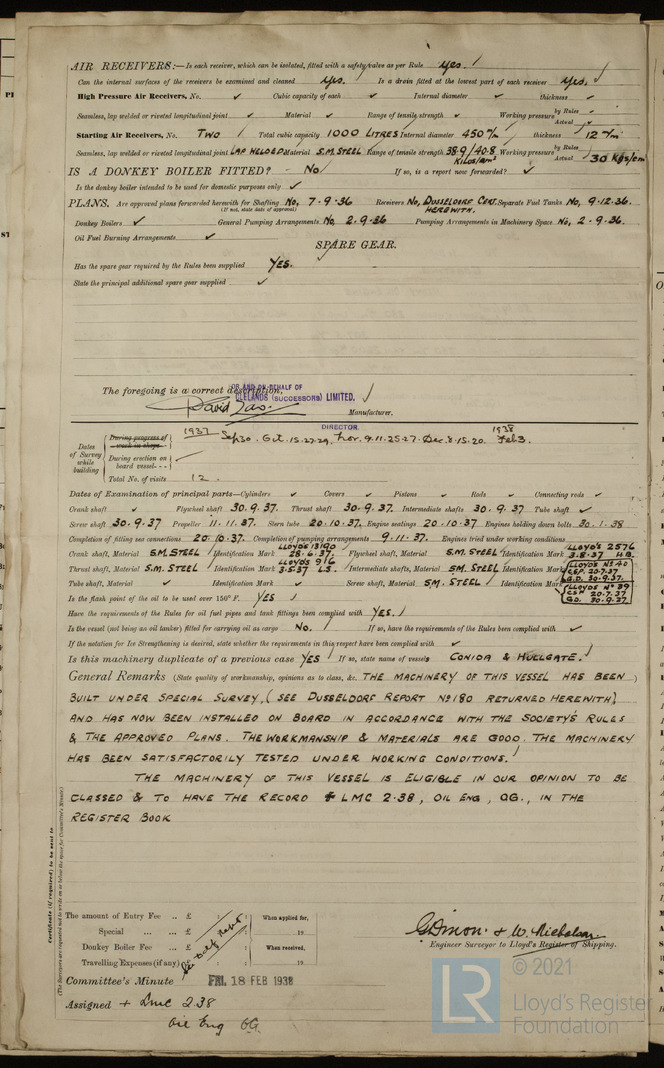 AIR RECEIVERS:—Is each receiver, which can be isolated, fitted with a safety valve as per Rule Yes.
Can the internal surfaces of the receivers be examined and cleaned Yes. Is a drain fitted at the lowest part of each receiver Yes.
High Pressure Air Receivers, No. ✓ Cubic capacity of each ✓ Internal diameter ✓ thickness ✓
Seamless, lap welded or riveted longitudinal joint ✓ Material ✓ Range of tensile strength ✓ Working pressure by Rules ✓ Actual ✓
Starting Air Receivers, No. TWO Total cubic capacity 1000 LITRES Internal diameter 450 m/m thickness 12 m/m
Seamless, lap welded or riveted longitudinal joint LAP WELDED Material S.M. STEEL Range of tensile strength 38.9/40.8 KILOS/mm² Working pressure by Rules Actual 30 Kgs/cm
IS A DONKEY BOILER FITTED? No If so, is a report now forwarded? ✓
Is the donkey boiler intended to be used for domestic purposes only ✓
PLANS. Are approved plans forwarded herewith for Shafting No, 7.9.36 Receivers No, DUSSELDORF CERT. HEREWITH. Separate Fuel Tanks No, 9.12.36.
(If not, state date of approval)
Donkey Boilers ✓ General Pumping Arrangements No, 2.9.36 Pumping Arrangements in Machinery Space No, 2.9.36.
Oil Fuel Burning Arrangements ✓
SPARE GEAR.
Has the spare gear required by the Rules been supplied YES.
State the principal additional spare gear supplied ✓
The foregoing is a correct description,
FOR AND ON BEHALF OF
CLELANDS (SUCCESSORS) LIMITED,
Manufacturer.
DIRECTOR.
Dates of Survey while building
During progress of work in shops - -
1937 Sep 30. Oct. 15.27.29, Nov. 9.11.25.27. Dec. 8.15.20. 1938 Feb 3.
During erection on board vessel - - - ✓
Total No. of visits 12.
Dates of Examination of principal parts—Cylinders ✓ Covers ✓ Pistons ✓ Rods ✓ Connecting rods ✓
Crank shaft ✓ Flywheel shaft 30.9.37. Thrust shaft 30.9.37. Intermediate shafts 30.9.37. Tube shaft ✓
Screw shaft 30.9.37 Propeller 11.11.37. Stern tube 20.10.37. Engine seatings 20.10.37 Engines holding down bolts 30.1.38
Completion of fitting sea connections 20.10.37. Completion of pumping arrangements 9.11.37. Engines tried under working conditions
Crank shaft, Material S.M. STEEL Identification Mark LLOYDS 13190 28.6.37. Flywheel shaft, Material S.M. STEEL Identification Mark LLOYDS 2576 3.8.37 H.B.
Thrust shaft, Material S.M. STEEL Identification Mark LLOYDS 916 3.5.37 L.S. Intermediate shafts, Material S.M. STEEL Identification Mark LLOYDS No 40 20.7.37 G.D. 30.9.37.
Tube shaft, Material ✓ Identification Mark ✓ Screw shaft, Material S.M. STEEL Identification Mark LLOYDS No 39 20.7.37 G.D. 30.9.37
Is the flash point of the oil to be used over 150° F. YES
Have the requirements of the Rules for oil fuel pipes and tank fittings been complied with YES.
Is the vessel (not being an oil tanker) fitted for carrying oil as cargo No. If so, have the requirements of the Rules been complied with ✓
If the notation for Ice Strengthening is desired, state whether the requirements in this respect have been complied with ✓
Is this machinery duplicate of a previous case YES If so, state name of vessels CONIDA & HULLGATE.
General Remarks (State quality of workmanship, opinions as to class, &c. THE MACHINERY OF THIS VESSEL HAS BEEN
BUILT UNDER SPECIAL SURVEY, (SEE DUSSELDORF REPORT No 180 RETURNED HEREWITH)
AND HAS NOW BEEN INSTALLED ON BOARD IN ACCORDANCE WITH THE SOCIETY'S RULES
& THE APPROVED PLANS. THE WORKMANSHIP & MATERIALS ARE GOOD. THE MACHINERY
HAS BEEN SATISFACTORILY TESTED UNDER WORKING CONDITIONS.
THE MACHINERY OF THIS VESSEL IS ELIGIBLE IN OUR OPINION TO BE
CLASSED & TO HAVE THE RECORD + LMC 2.38, OIL ENG, OG., IN THE
REGISTER BOOK
Certificate (if required) to be sent to
(The Surveyors are requested not to write on or below the space for Committee's Minute.)
The amount of Entry Fee .. £ : : When applied for,
Special ... ... £ : : 19
Donkey Boiler Fee ... £ : : When received,
Travelling Expenses (if any) £ : : 19
Engineer Surveyor to Lloyd's Register of Shipping.
Committee's Minute FRI. 18 FEB 1938
Assigned + LMC 2.38
Oil Eng OG.
LR
© 2021
Lloyd's Register
Foundation